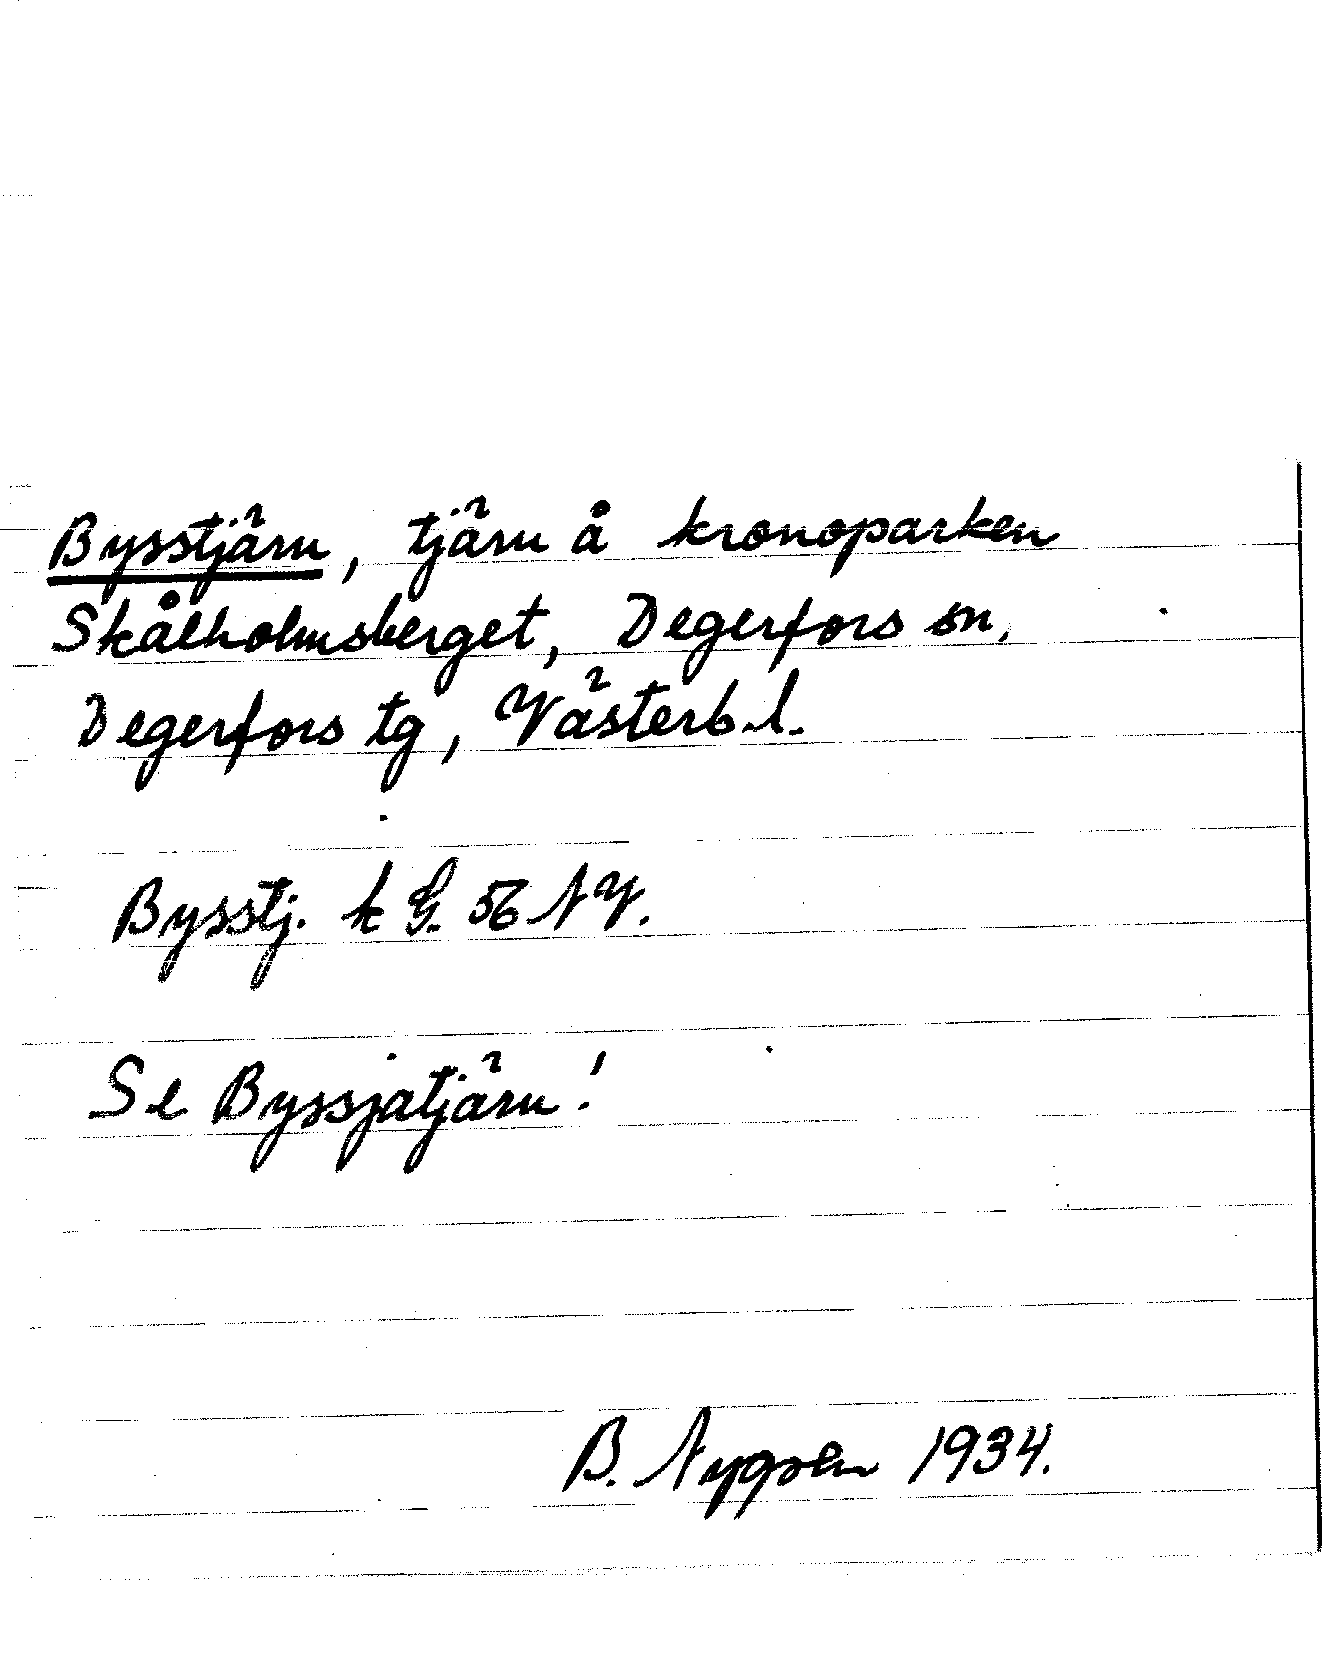 Bysstjärn, tjärn å kronoparken
Skålholmsberget, Degerfors sn,
Degerfors tg, Västerb. l.
Bysstj. k G. 56 N V.
Se Byssjatjärn!
B. Nygren 1934.